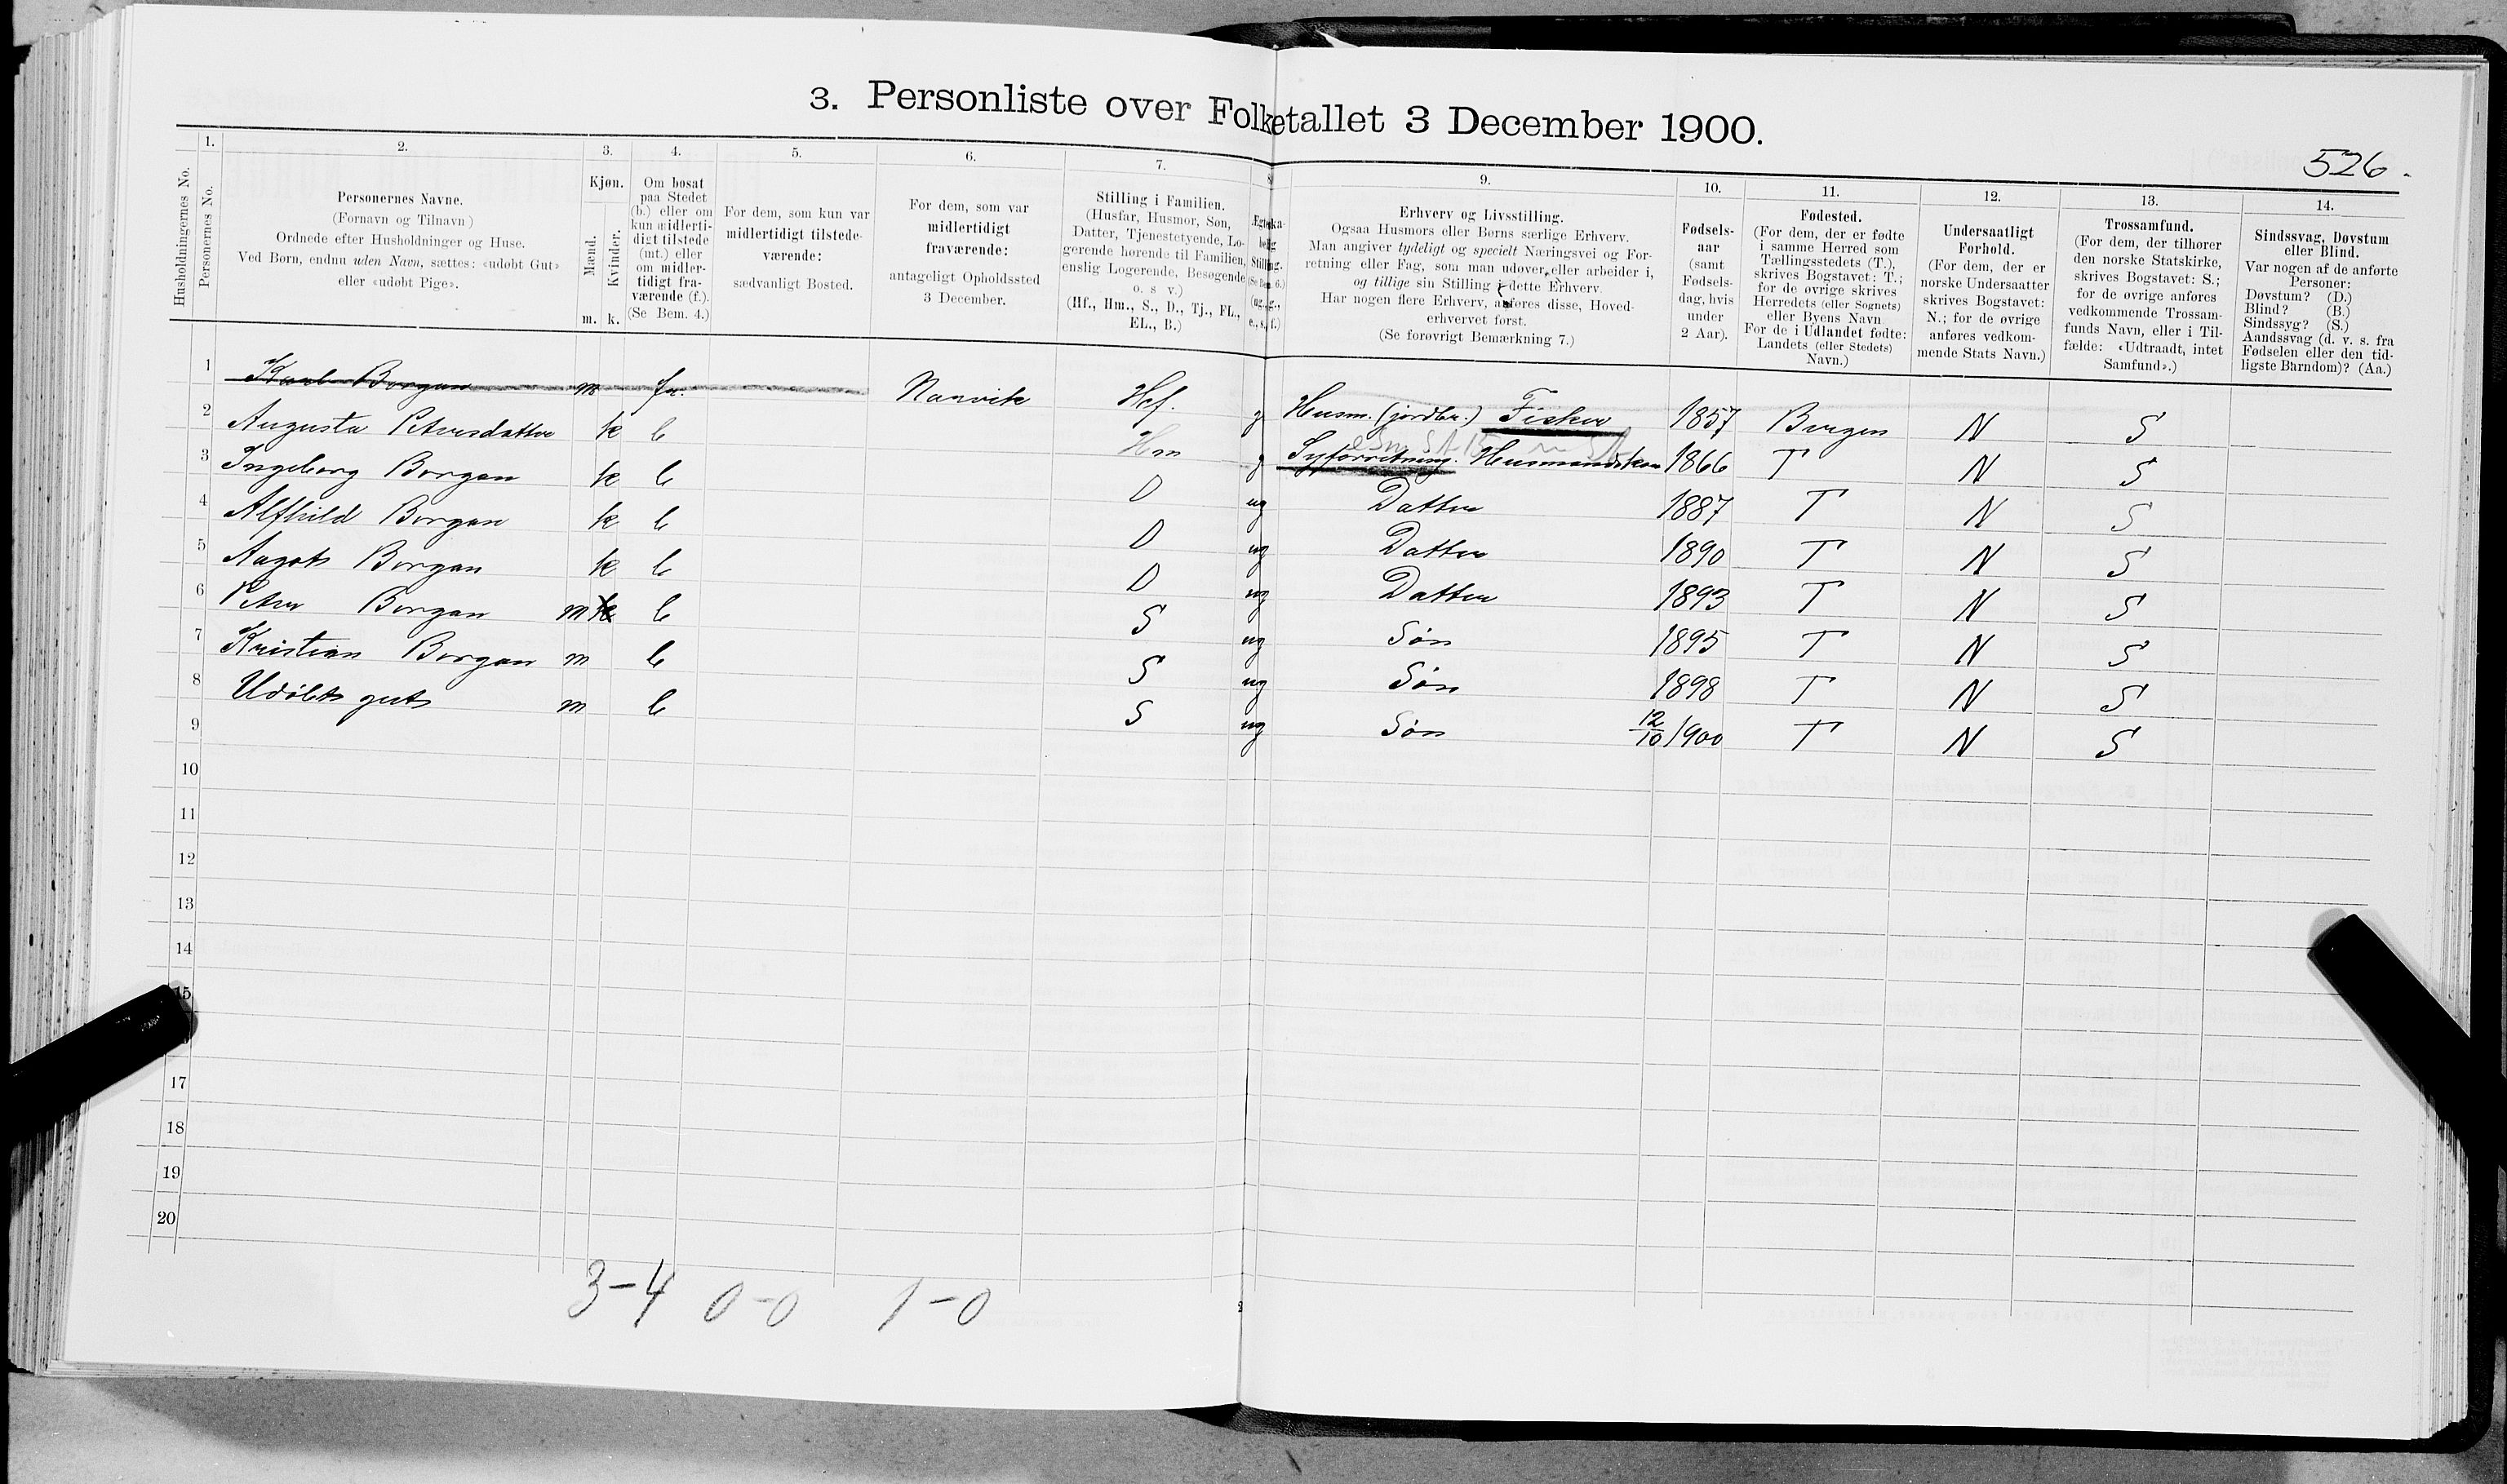 3. Personliste over Folketallet 3 December 1900.
526.
Husholdningernes No.
1.
Personernes No.
2.
Personernes Navne.
(Fornavn og Tilnavn)
Ordnede efter Husholdninger og Huse.
Ved Børn, endnu uden Navn, sættes: «udøbt Gut»
eller «udøbt Pige».
3.
Kjøn.
Mænd.
Kvinder.
m. k.
4.
Om bosat
paa Stedet
(b.) eller om
kun midlerti-
digt tilstede
(mt.) eller
om midler-
tidigt fra-
værende (f.).
(Se Bem. 4.)
5.
For dem, som kun var
midlertidigt tilstede-
værende:
sædvanligt Bosted.
6.
For dem, som var
midlertidigt
fraværende:
antageligt Opholdssted
3 December.
7.
Stilling i Familien.
(Husfar, Husmor, Søn,
Datter, Tjenestetyende, Lo-
gerende hørende til Familien,
enslig Logerende, Besøgende
o. s v.)
(Hf., Hm., S., D., Tj., FL.,
EL., B.)
9.
Erhverv og Livsstilling.
Ogsaa Husmors eller Børns særlige Erhverv.
Man angiver tydeligt og specielt Næringsvei og For-
retning eller Fag, som man udøver eller arbeider i,
og tillige sin Stilling i dette Erhverv.
Har nogen flere Erhverv, anføres disse, Hoved-
erhvervet først.
(Se forøvrigt Bemærkning 7.)
10.
Fødsels-
aar
(samt
Fødsels-
dag, hvis
under
2 Aar).
11.
Fødested.
(For dem, der er fødte
i samme Herred som
Tællingsstedets (T.),
skrives Bogstavet: T.;
for de øvrige skrives
Herredets (eller Sognets)
eller Byens Navn
For de i Udlandet fødte:
Landets (eller Stedets)
Navn.)
12.
Undersaatligt
Forhold.
(For dem, der er
norske Undersaatter
skrives Bogstavet:
N.; for de øvrige
anføres vedkom-
mende Stats Navn.)
13.
Trossamfund.
(For dem, der tilhører
den norske Statskirke,
skrives Bogstavet: S.;
for de øvrige anføres
vedkommende Trossam-
funds Navn, eller i Til-
fælde: «Udtraadt, intet
Samfund».)
14.
Sindssvag, Døvstum
eller Blind.
Var nogen af de anførte
Personer:
Døvstum? (D.)
Blind? (B.)
Sindssyg? (S.)
Aandssvag (d. v. s. fra
Fødselen eller den tid-
ligste Barndom)? (Aa.)
1 Karl Borgan m fr. Narvik Hf. g Husm. (jordbr.) Fisker 1857 Bergen N S
2 Augusta Petersdatter k b Hm g Syforretning. Husmandskone 1866 T N S
3 Ingeborg Borgan k b D ug Datter 1887 T N S
4 Alfhild Borgan k b D ug Datter 1890 T N S
5 Aagot Borgan k b D ug Datter 1893 T N S
6 Peter Borgan m k b S ug Søn 1895 T N S
7 Kristian Borgan m b S ug Søn 1898 T N S
8 Udøbt gut m b S ug Søn 12/10 1900 T N S
9
10
11
12
13
14
15
17
18
19
20
3-4 0-0 1-0